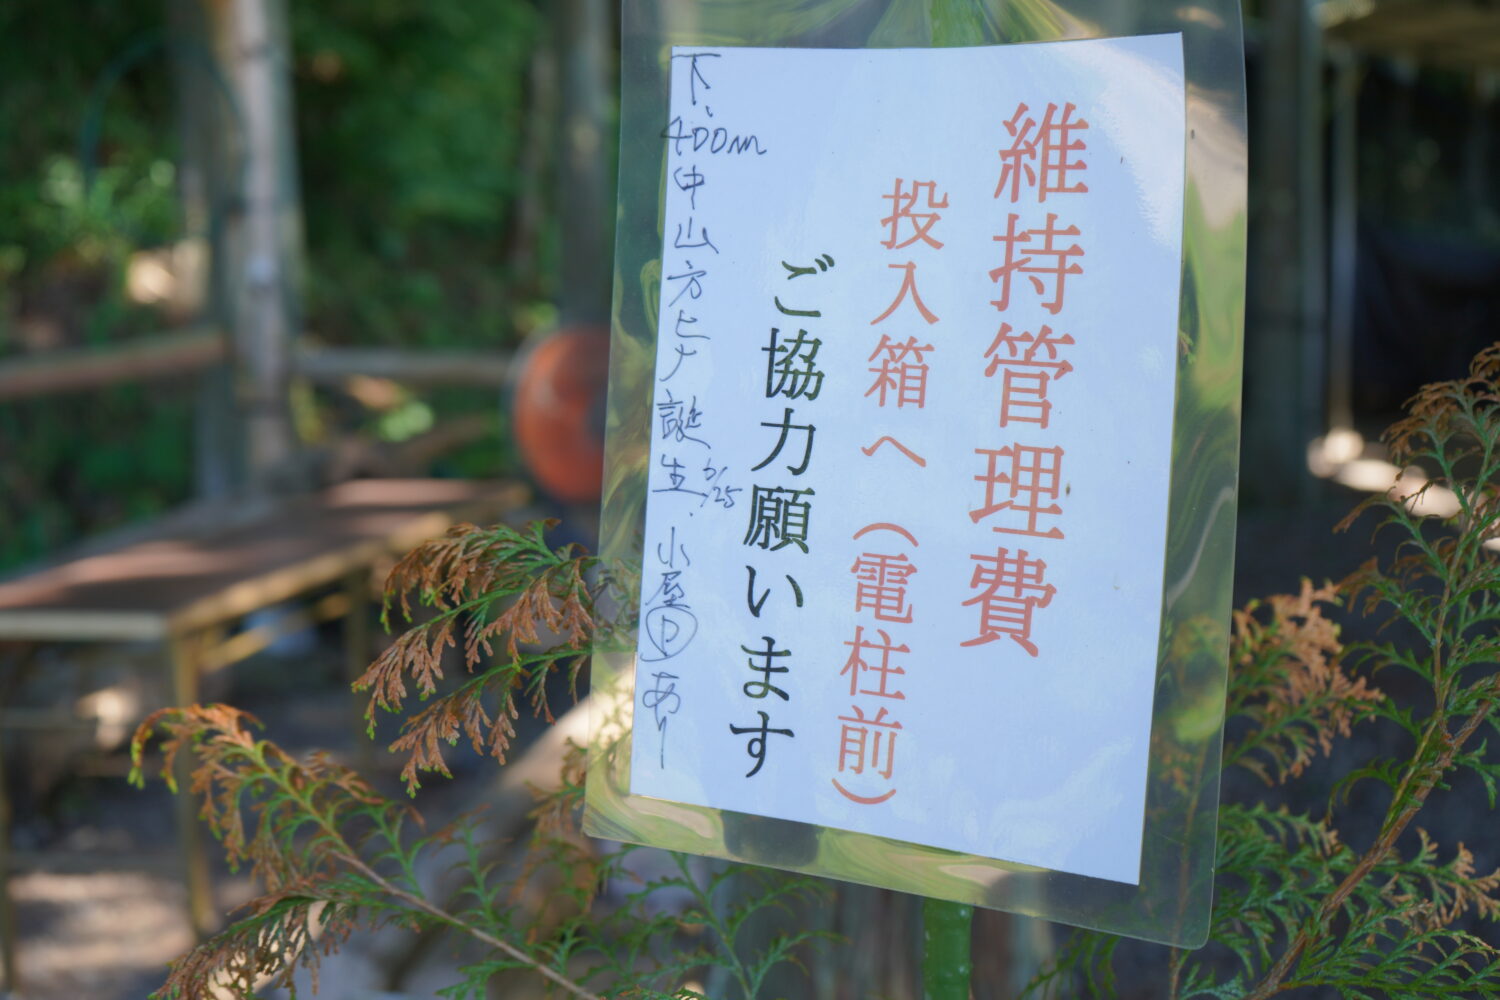 維持管理費
投入箱へ（電柱前）
ご協力願います
下、400m中山方ヒナ誕生6/25、小屋
あり